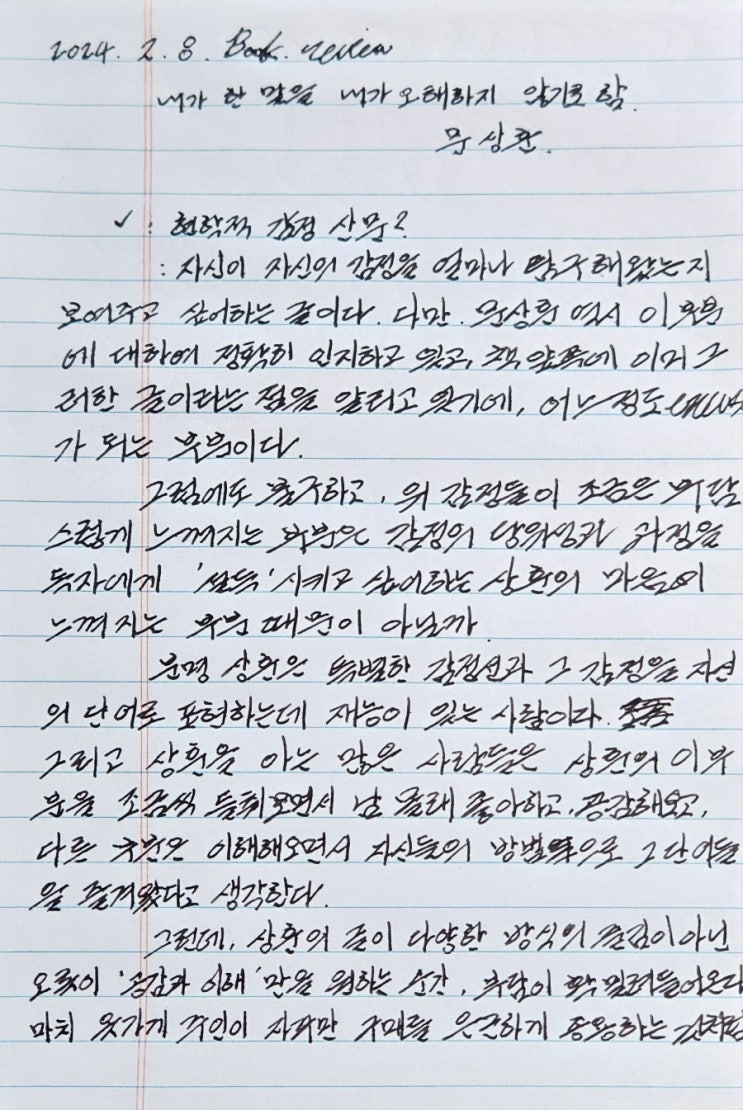 2024. 2. 8. Book. review
내가 한 말을 내가 오해하지 않기로 함.
문상훈.
✓ : 현학적 감정 산문?
: 자신이 자신의 감정을 얼마나 탐구해왔는지
보여주고 싶어하는 글이다. 다만. 문상훈 역시 이 부분
에 대하여 정확히 인지하고 있고, 책 앞쪽에 이미 그
러한 글이라는 점을 알리고 있기에, 어느 정도
가 되는 부분이다.
그럼에도 불구하고, 위 감정들이 조금은 부담
스럽게 느껴지는 부분은 감정의 당위성과 과정을
독자에게 '설득'시키고 싶어하는 상훈의 마음이
느껴지는 부분 때문이 아닐까
분명 상훈은 특별한 감정선과 그 감정을 자신
의 단어로 표현하는데 재능이 있는 사람이다.
그리고 상훈을 아는 많은 사람들은 상훈의 이 부
분을 조금씩 들춰보면서 남 몰래 좋아하고, 공감해오고,
다른 부분은 이해해오면서 자신들의 방법으로 그 단어들
을 즐겨왔다고 생각한다.
그런데, 상훈의 글이 다양한 방식의 즐김이 아닌
오롯이 '공감과 이해'만을 원하는 순간, 부담이 확 밀려들어온다
마치 옷가게 주인이 자꾸만 구매를 은근하게 종용하는